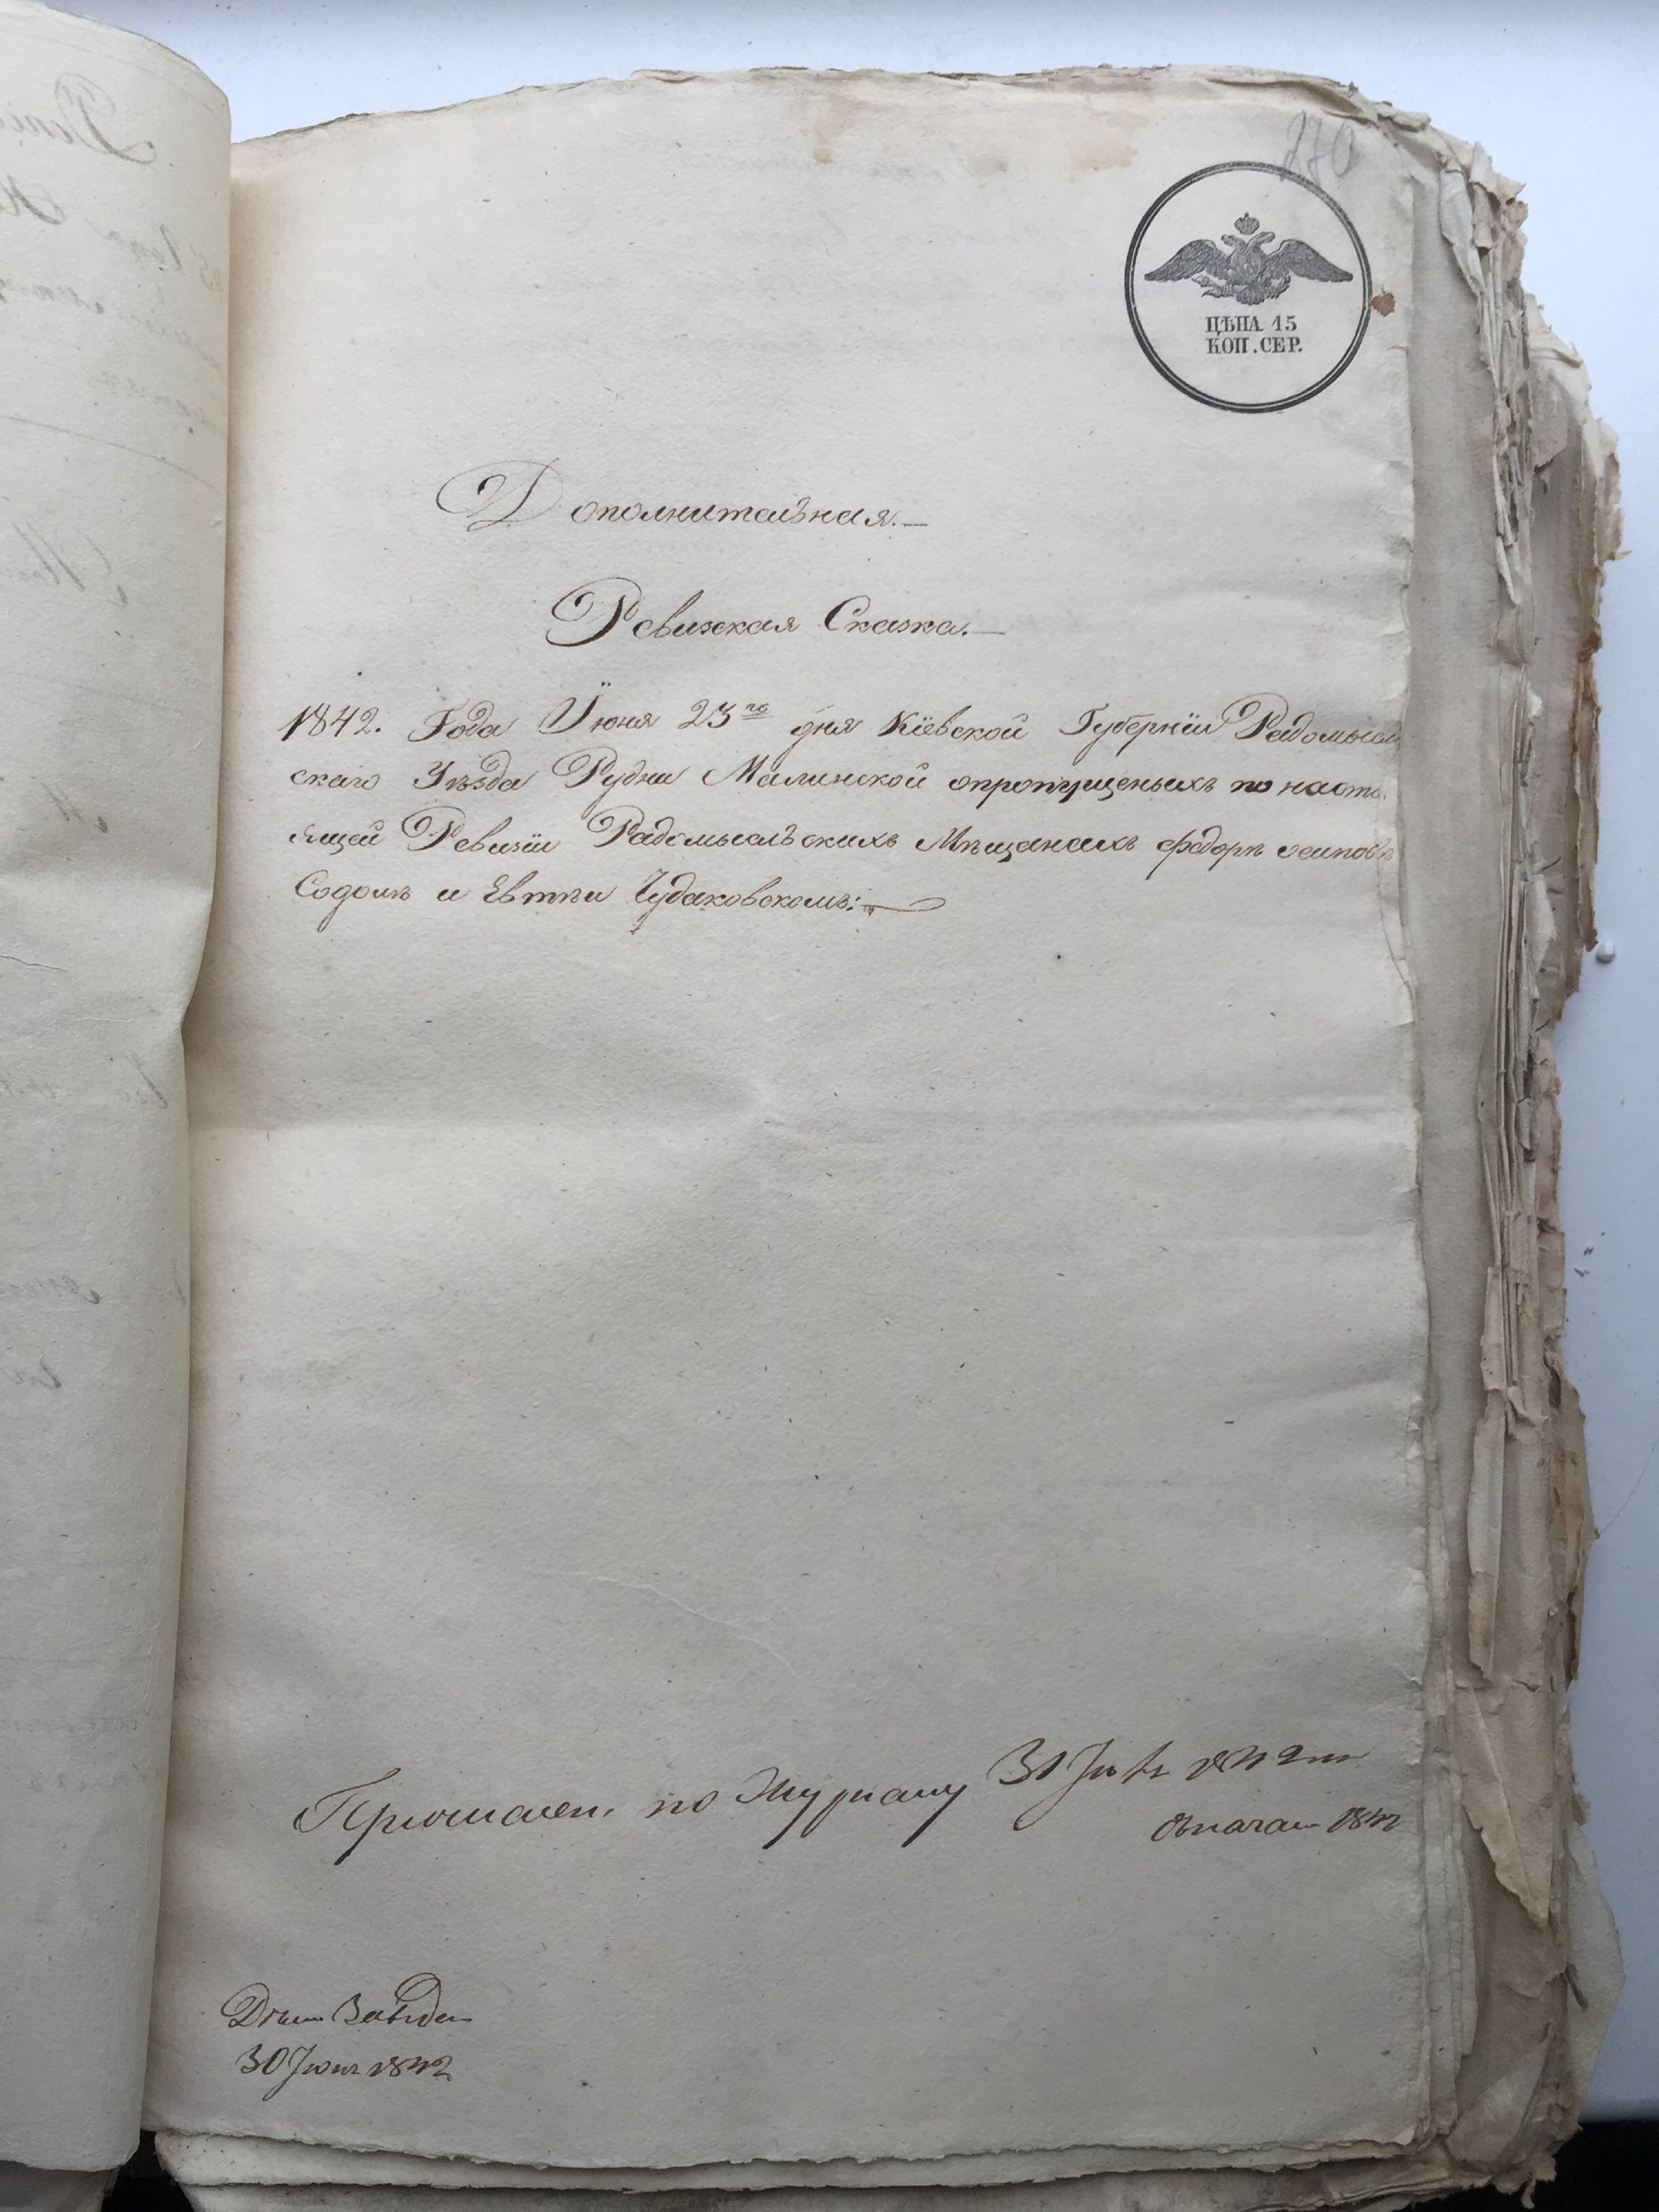 270
ЦѢНА 15
КОП. СЕР.
Дополнительная.
Ревизкая Сказка.
1842. Года Июня 23го дня Кіевской Губерніи Радомысль
скаго Уѣзда Рудни Малинской опропущеныхъ по насто
ящей Ревизіи Радомысльскихъ Мѣщанахъ Федорѣ осиповѣ
Содолѣ и Евтѣи Чудаковскомъ:
по Журналу 31 1842
1842
30 Июня 1842